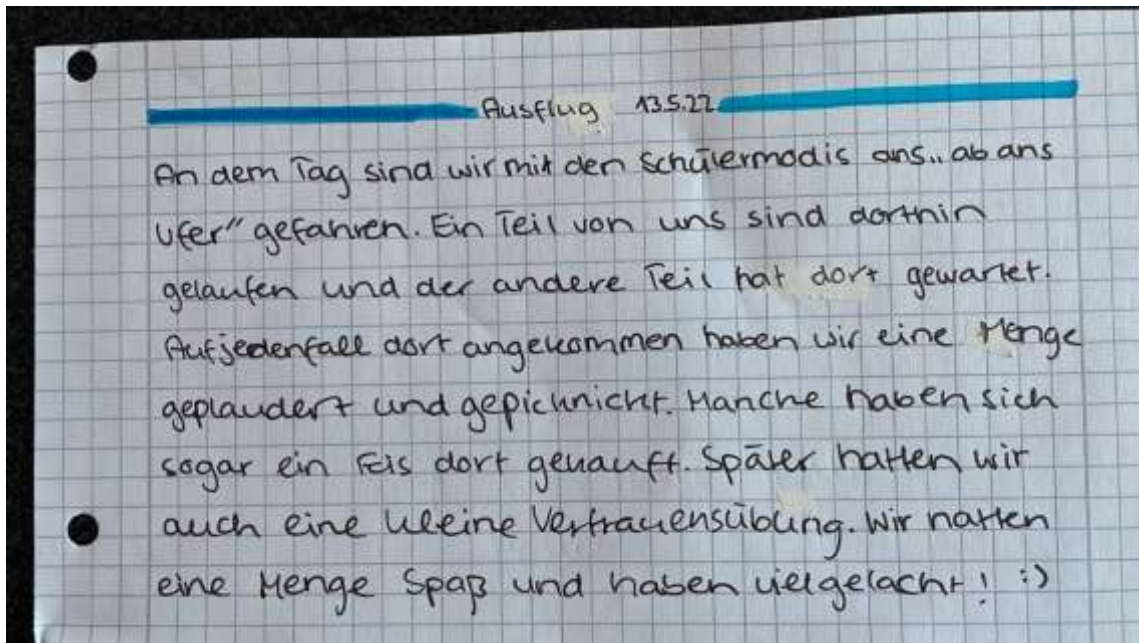 Ausflug 13.5.22
An dem Tag sind wir mit den Schülermodis ans „ab ans
Ufer" gefahren. Ein Teil von uns sind dorthin
gelaufen und der andere Teil hat dort gewartet.
Aufjedenfall dort angekommen haben wir eine Menge
geplaudert und gepicknickt. Manche haben sich
sogar ein Eis dort gekauft. Später hatten wir
auch eine kleine Vertrauensübung. Wir hatten
eine Menge Spaß und haben viel gelacht! :)